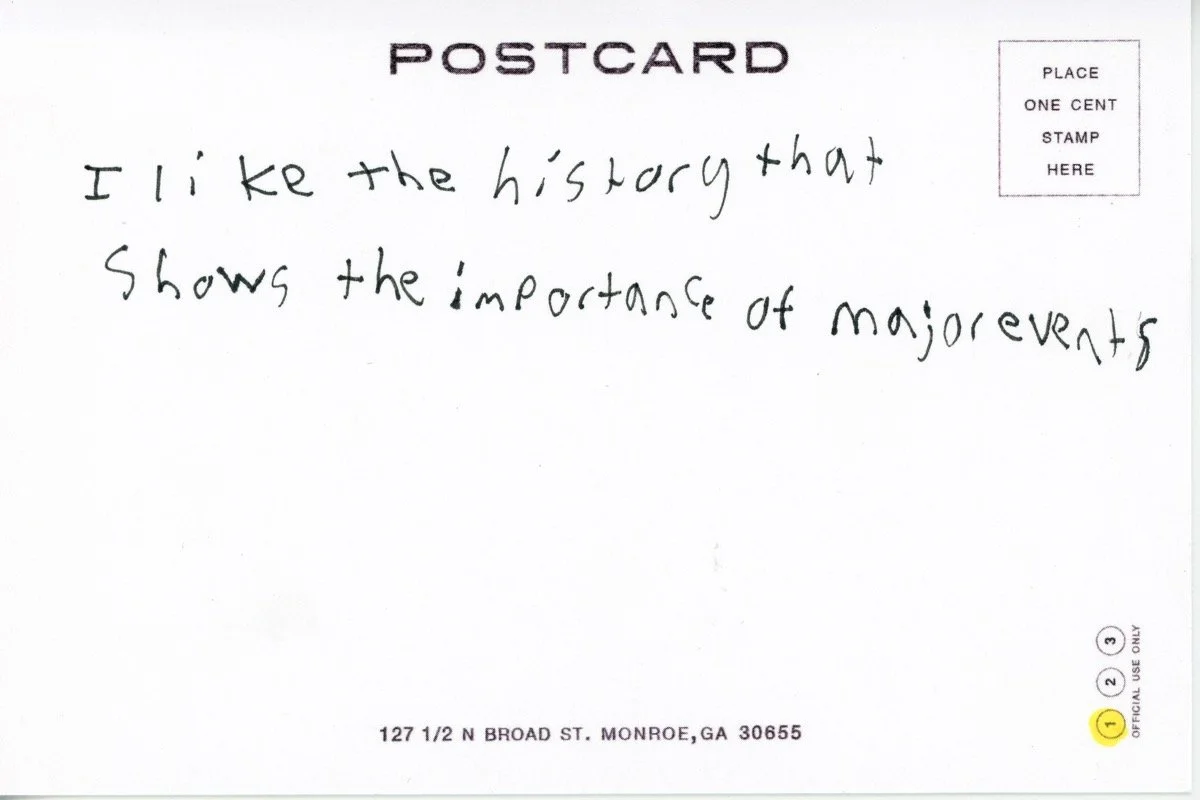 POSTCARD
PLACE
ONE CENT
STAMP
HERE
I like the history that
Shows the importance of major events
127 1/2 N BROAD ST. MONROE, GA 30655
1 2 3
OFFICIAL USE ONLY